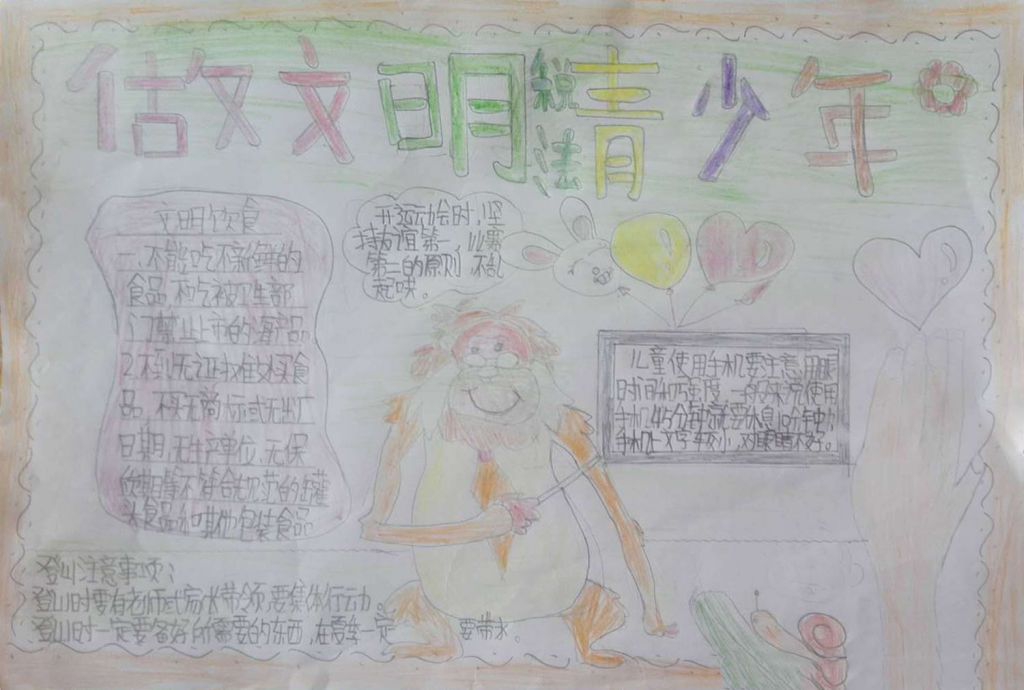 做文明青少年
税法
文明饮食
一、不能吃不新鲜的
食品,不吃被卫生部
门禁止上市的海产品
2.不到无证摊处买食
品,不买无商标或无出厂
日期,无生产单位,无保
质期等不符合规范的罐
头食品和其他包装食品
开运动会时,坚
持友谊第一,比赛
第二的原则,不乱
起哄。
儿童使用手机要注意用眼
时间和强度,一般来说使用
手机45分钟就要休息10分钟,
手机上文字
对眼睛不好。
登山注意事项:
登山时要有老师或家长带领,要集体行动。
登山时一定要备好所需要的东西,在夏季一定 要带水。